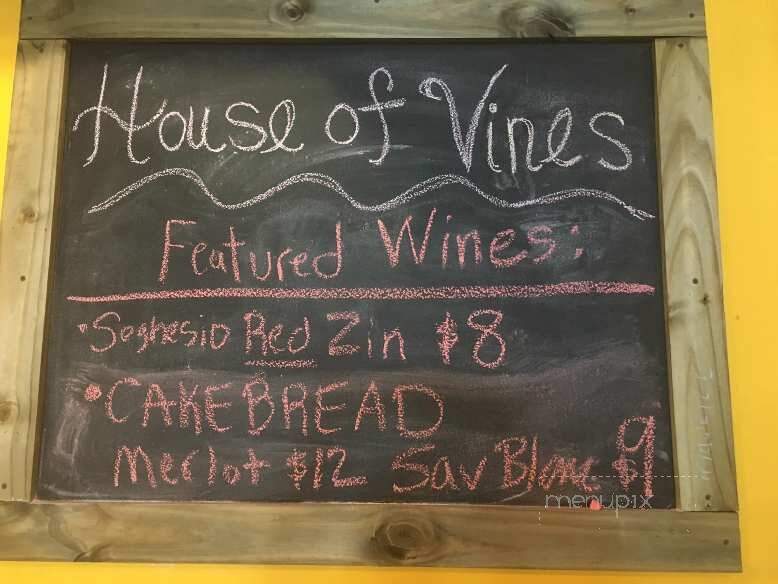 House of Vines
Featured Wines:
• Seghesio Red Zin $8
• CAKEBREAD
Merlot $12 Sav Blanc $9
menupix